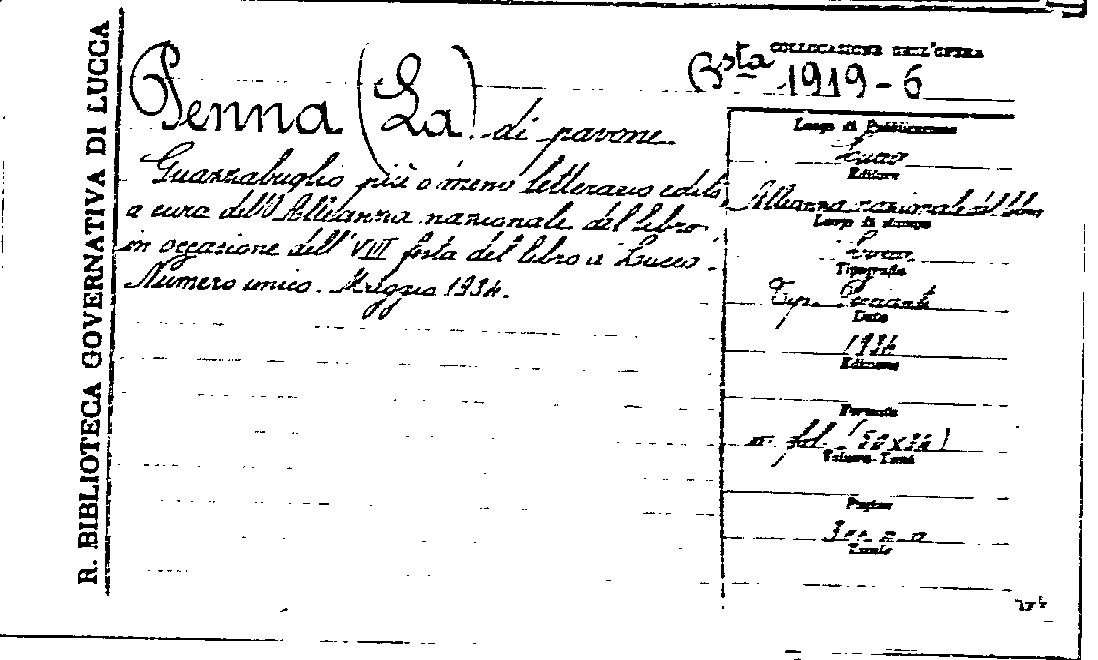 R. BIBLIOTECA GOVERNATIVA DI LUCCA
Penna (La) di pavone.
Guazzabuglio più o meno letterario edito
a cura dell'Alleanza nazionale del libro
in occasione dell'VIII festa del libro a Lucca.
Numero unico. Maggio 1934.
COLLOCAZIONE DELL'OPERA
Bsta 1919-6
Luogo di Pubblicazione
Lucca
Editore
Alleanza nazionale del libro
Luogo di stampa
Lucca
Tipografia
Tip.
Data
1934
Edizione
Formato
fol. (50x34)
Volume-Tomi
Pagine